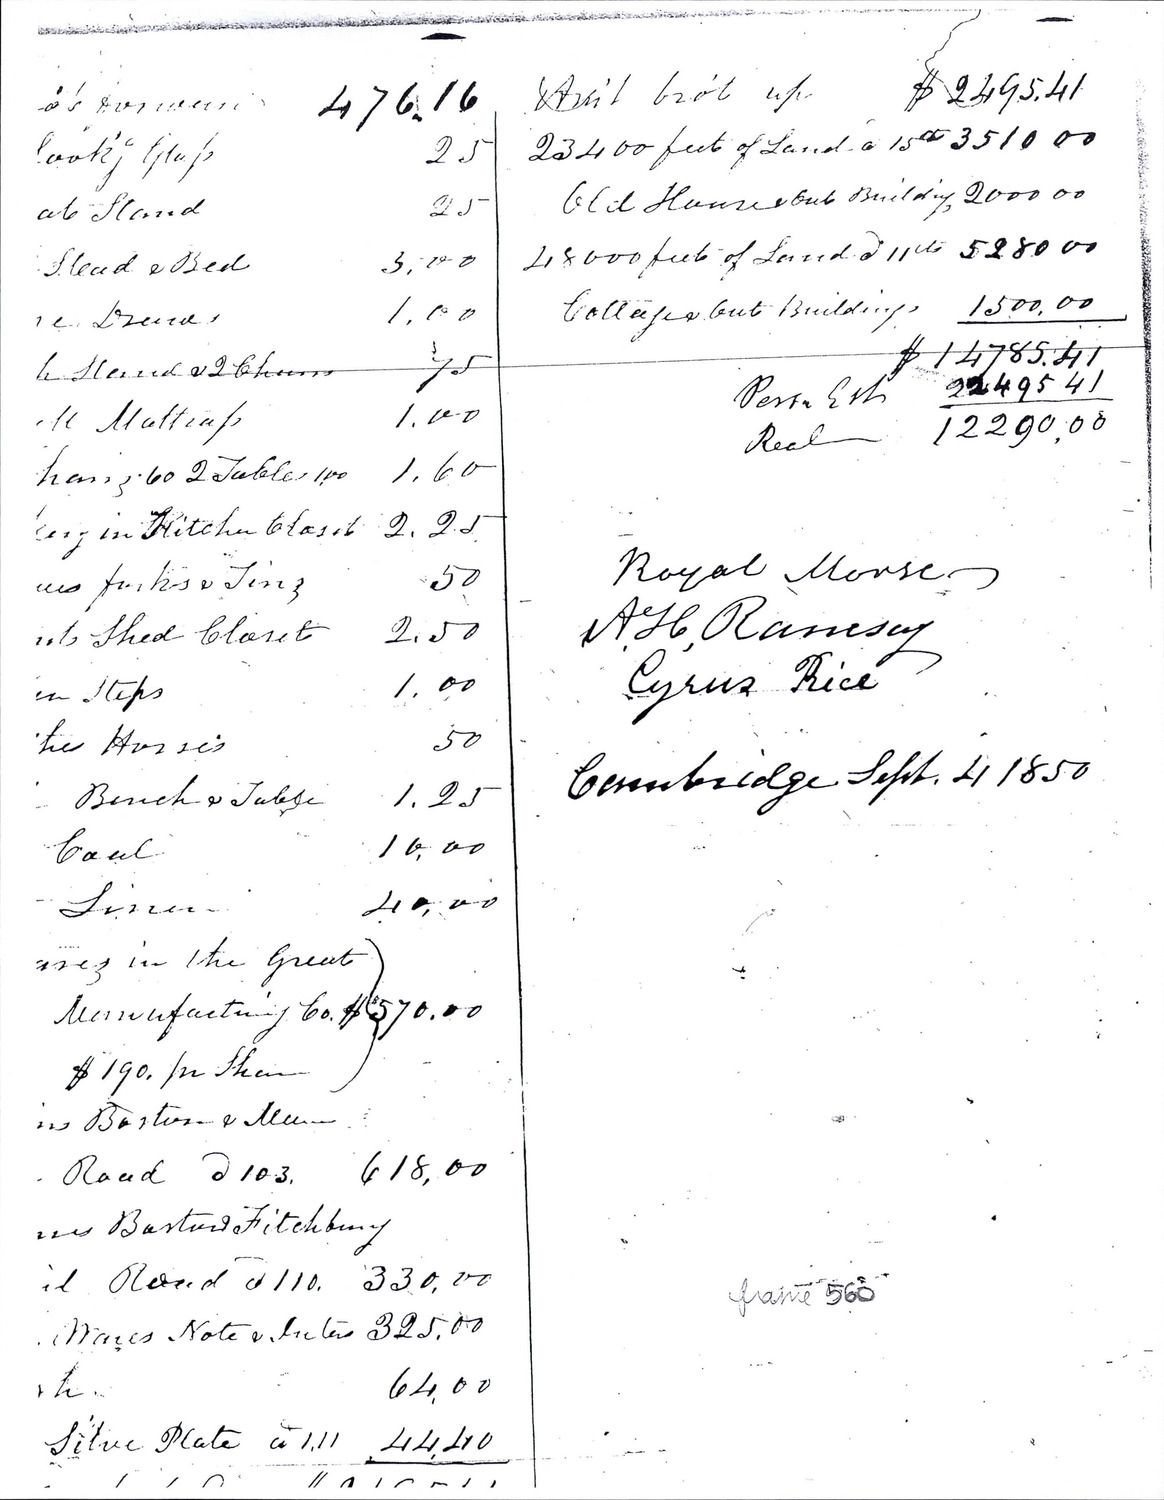 476.16
Look'g Glass 25
Stand 25
Stead & Bed 3,00
1.00
Stand & 2 Chairs 75
Mattrass 1.00
60 2 Tables 1,00 1.60
in Kitchen Closet 2.25
forks & Tins 50
Shed Closet 2.50
Steps 1.00
Horses 50
Bench & Table 1.25
Coal 10,00
Linen 40,00
in the Great
Manufacturing Co. $570.00
$190. pr Share
Boston & Maine
Road @ 103. 618,00
Boston & Fitchburg
Road @ 110. 330,00
Note & Inters 325.00
64,00
Silver Plate a 1.11 44,40
Am't bro't up $2495.41
23400 feet of Land a 15cts 3510 00
Old House & out Buildings 2000 00
48000 feet of Land @ 11cts 5280 00
Cottage & out Buildings 1500,00
$14785.41
Persn Est 2495 41
Real 12290,00
Royal Morse
A. H. Ramsay
Cyrus Rice
Cambridge Sept. 4 1850
frame 560